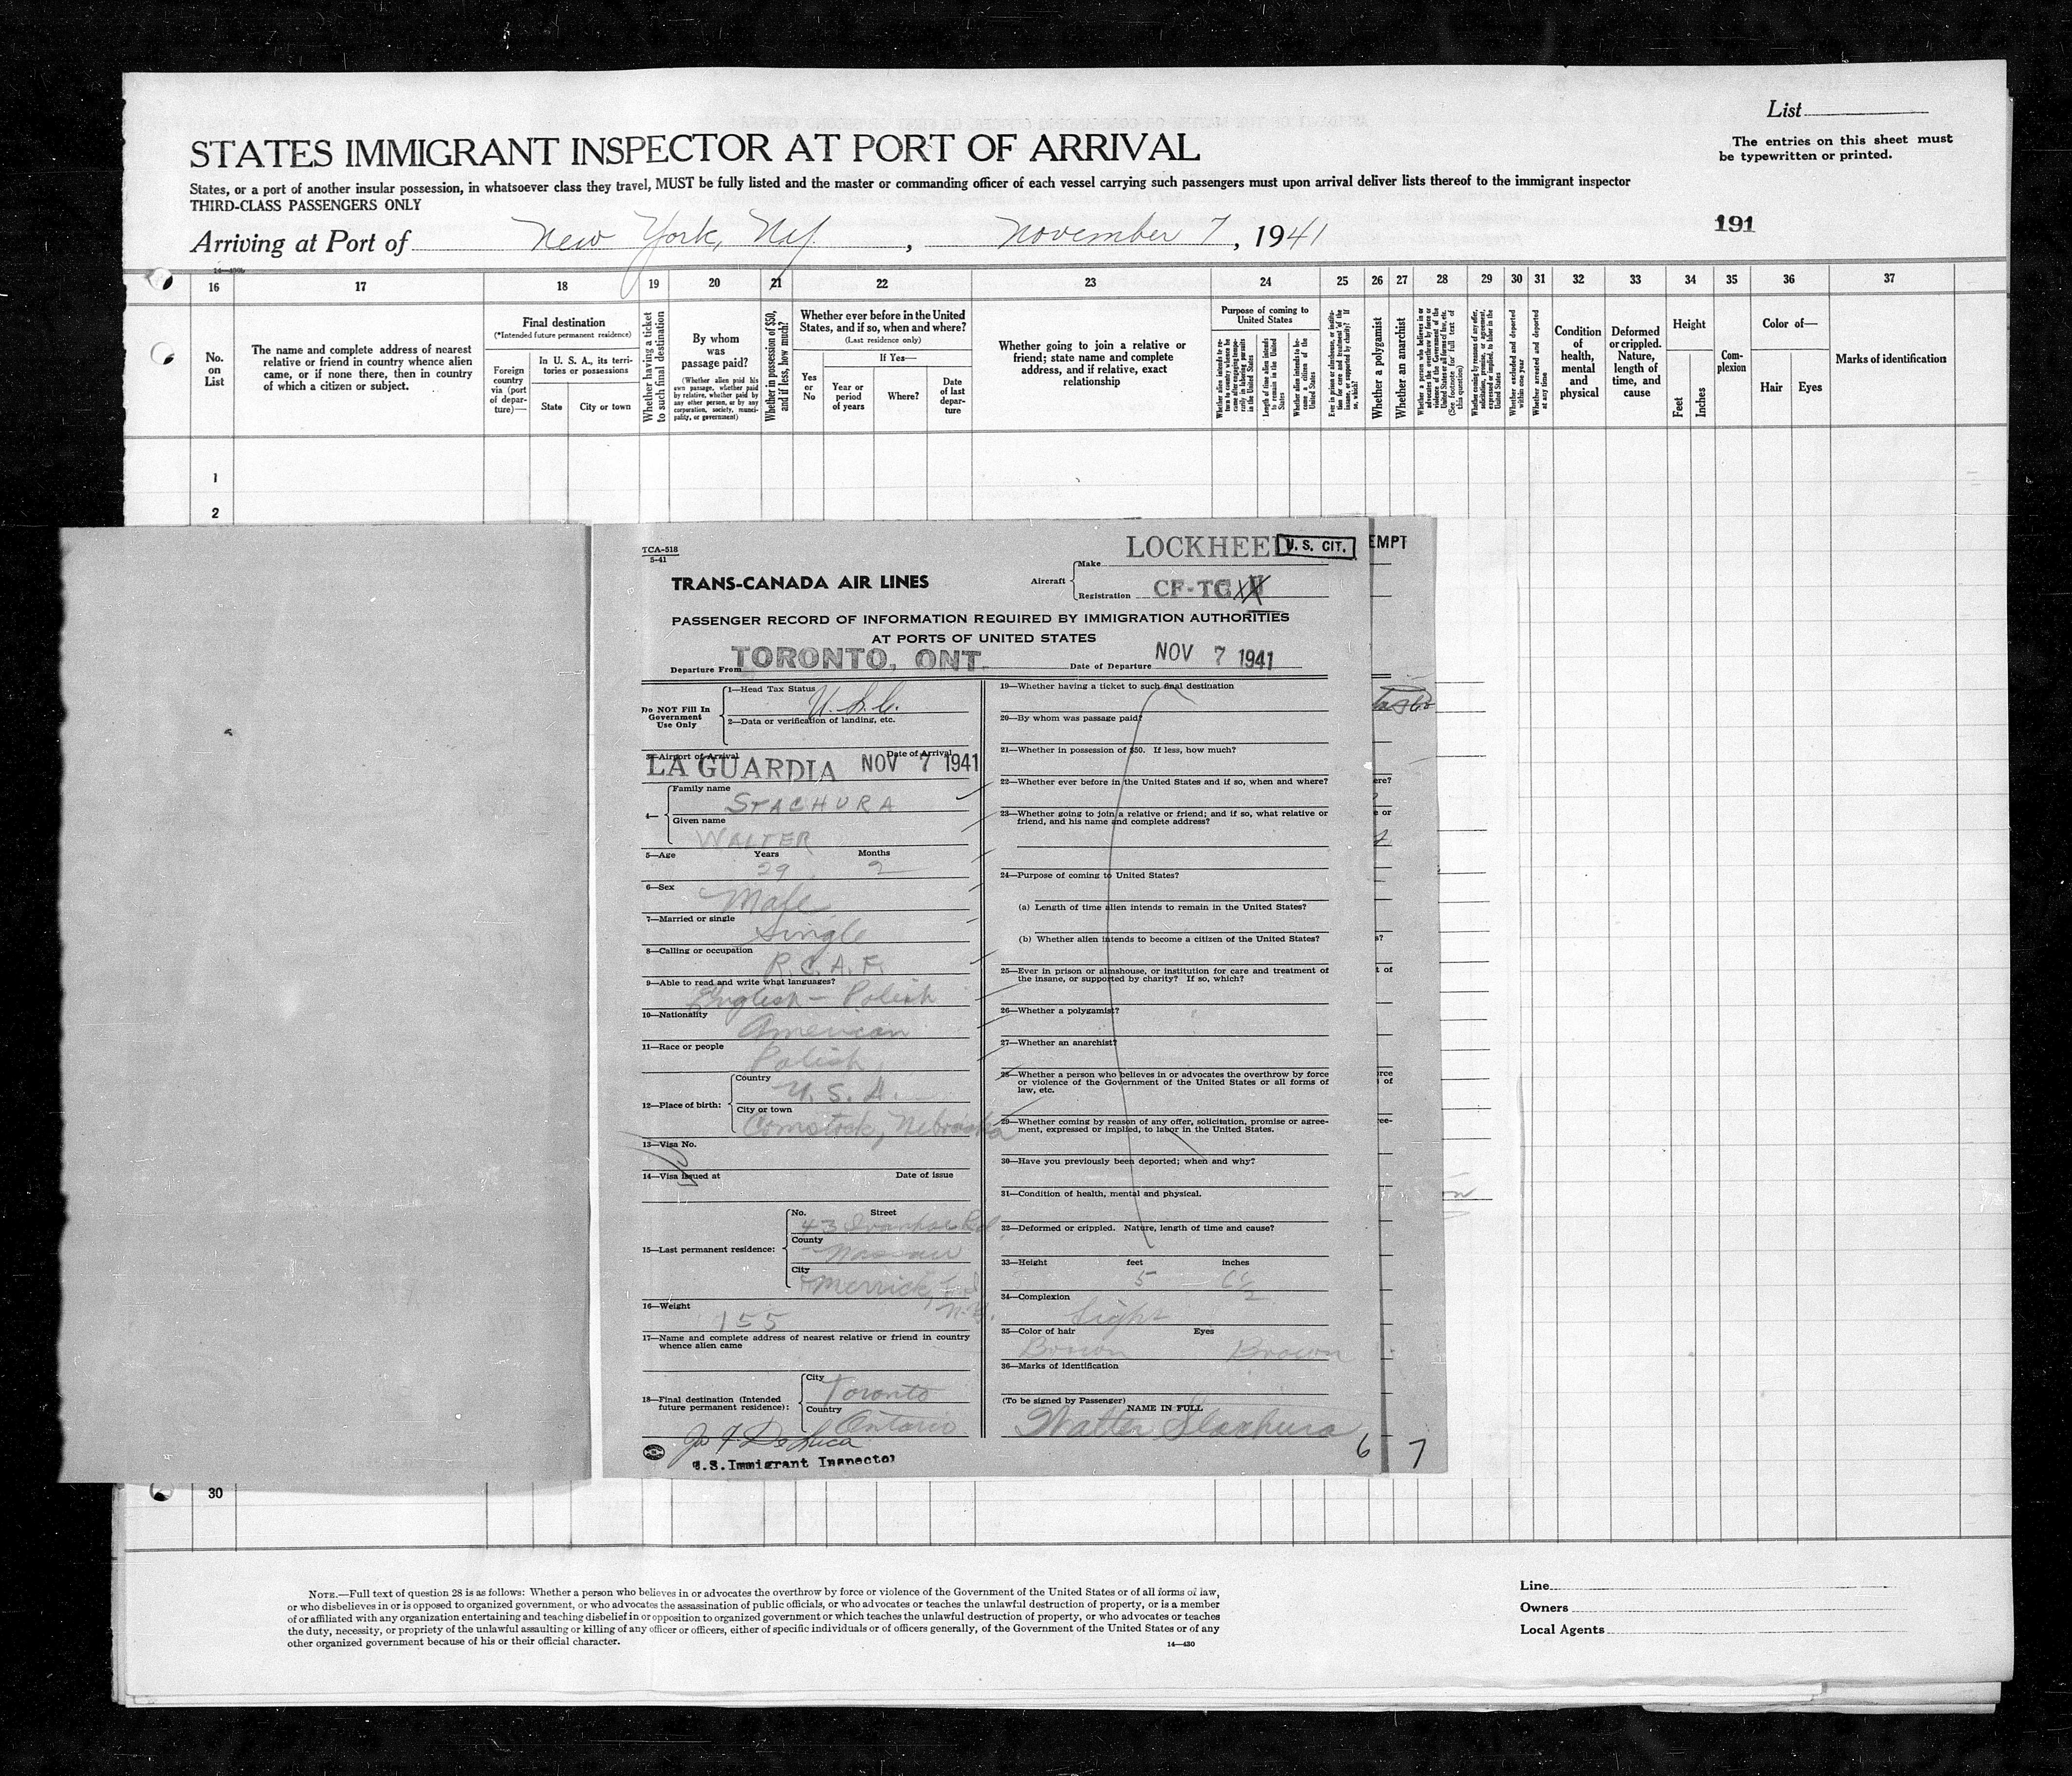 List
STATES IMMIGRANT INSPECTOR AT PORT OF ARRIVAL
The entries on this sheet must
be typewritten or printed.
States, or a port of another insular possession, in whatsoever class they travel, MUST be fully listed and the master or commanding officer of each vessel carrying such passengers must upon arrival deliver lists thereof to the immigrant inspector
THIRD-CLASS PASSENGERS ONLY
191
Arriving at Port of New York, N.Y. , November 7, 1941
16 17 18 19 20 21 22 23 24 25 26 27 28 29 30 31 32 33 34 35 36 37
No.
on
List
The name and complete address of nearest
relative or friend in country whence alien
came, or if none there, then in country
of which a citizen or subject.
Final destination
(*Intended future permanent residence)
Foreign
country
via (port
of depar-
ture)—
In U. S. A., its terri-
tories or possessions
State
City or town
Whether having a ticket
to such final destination
By whom
was
passage paid?
(Whether alien paid his
own passage, whether paid
by relative, whether paid by
any other person, or by any
corporation, society, munici-
pality, or government)
Whether in possession of $50,
and if less, how much?
Whether ever before in the United
States, and if so, when and where?
(Last residence only)
If Yes—
Yes
or
No
Year or
period
of years
Where?
Date
of last
depar-
ture
Whether going to join a relative or
friend; state name and complete
address, and if relative, exact
relationship
Purpose of coming to
United States
Length of time alien intends
to remain in the United
States
Whether alien intends to be-
come a citizen of the
United States
Whether a polygamist
Whether an anarchist
Whether excluded and deported
within one year
Whether arrested and deported
at any time
Condition
of
health,
mental
and
physical
Deformed
or crippled.
Nature,
length of
time, and
cause
Height
Feet
Inches
Com-
plexion
Color of—
Hair
Eyes
Marks of identification
1
2
TCA-518
5-41
LOCKHEED
U. S. CIT.
EMPT
TRANS-CANADA AIR LINES
Aircraft
Make
Registration CF-TC
PASSENGER RECORD OF INFORMATION REQUIRED BY IMMIGRATION AUTHORITIES
AT PORTS OF UNITED STATES
Departure From TORONTO, ONT. Date of Departure NOV 7 1941
Do NOT Fill In
Government
Use Only
1—Head Tax Status U.S.C.
2—Data or verification of landing, etc.
3—Airport of Arrival Date of Arrival
LA GUARDIA NOV 7 1941
4—
Family name
STACHURA
Given name
WALTER
5—Age Years Months
29 2
6—Sex
Male
7—Married or single
Single
8—Calling or occupation
R.C.A.F.
9—Able to read and write what languages?
English - Polish
10—Nationality
American
11—Race or people
Polish
12—Place of birth:
Country
U.S.A.
City or town
Comstock, Nebraska
13—Visa No.
14—Visa issued at Date of issue
15—Last permanent residence:
No. Street
43 Ivanhoe Rd.
County
Nassau
City
Merrick,
N.Y.
16—Weight
155
17—Name and complete address of nearest relative or friend in country
whence alien came
18—Final destination (Intended
future permanent residence):
City
Toronto
Country
Ontario
Jos F. DeLuca
U.S. Immigrant Inspector
19—Whether having a ticket to such final destination
20—By whom was passage paid?
21—Whether in possession of $50. If less, how much?
22—Whether ever before in the United States and if so, when and where?
23—Whether going to join a relative or friend; and if so, what relative or
friend, and his name and complete address?
24—Purpose of coming to United States?
(a) Length of time alien intends to remain in the United States?
(b) Whether alien intends to become a citizen of the United States?
25—Ever in prison or almshouse, or institution for care and treatment of
the insane, or supported by charity? If so, which?
26—Whether a polygamist?
27—Whether an anarchist?
28—Whether a person who believes in or advocates the overthrow by force
or violence of the Government of the United States or all forms of
law, etc.
29—Whether coming by reason of any offer, solicitation, promise or agree-
ment, expressed or implied, to labor in the United States.
30—Have you previously been deported; when and why?
31—Condition of health, mental and physical.
32—Deformed or crippled. Nature, length of time and cause?
33—Height feet inches
5 6½
34—Complexion
Light
35—Color of hair Eyes
Brown Brown
36—Marks of identification
(To be signed by Passenger)
NAME IN FULL
Walter Stachura
6
7
30
NOTE.—Full text of question 28 is as follows: Whether a person who believes in or advocates the overthrow by force or violence of the Government of the United States or of all forms of law,
or who disbelieves in or is opposed to organized government, or who advocates the assassination of public officials, or who advocates or teaches the unlawful destruction of property, or is a member
of or affiliated with any organization entertaining and teaching disbelief in or opposition to organized government or which teaches the unlawful destruction of property, or who advocates or teaches
the duty, necessity, or propriety of the unlawful assaulting or killing of any officer or officers, either of specific individuals or of officers generally, of the Government of the United States or of any
other organized government because of his or their official character.
14—430
Line
Owners
Local Agents